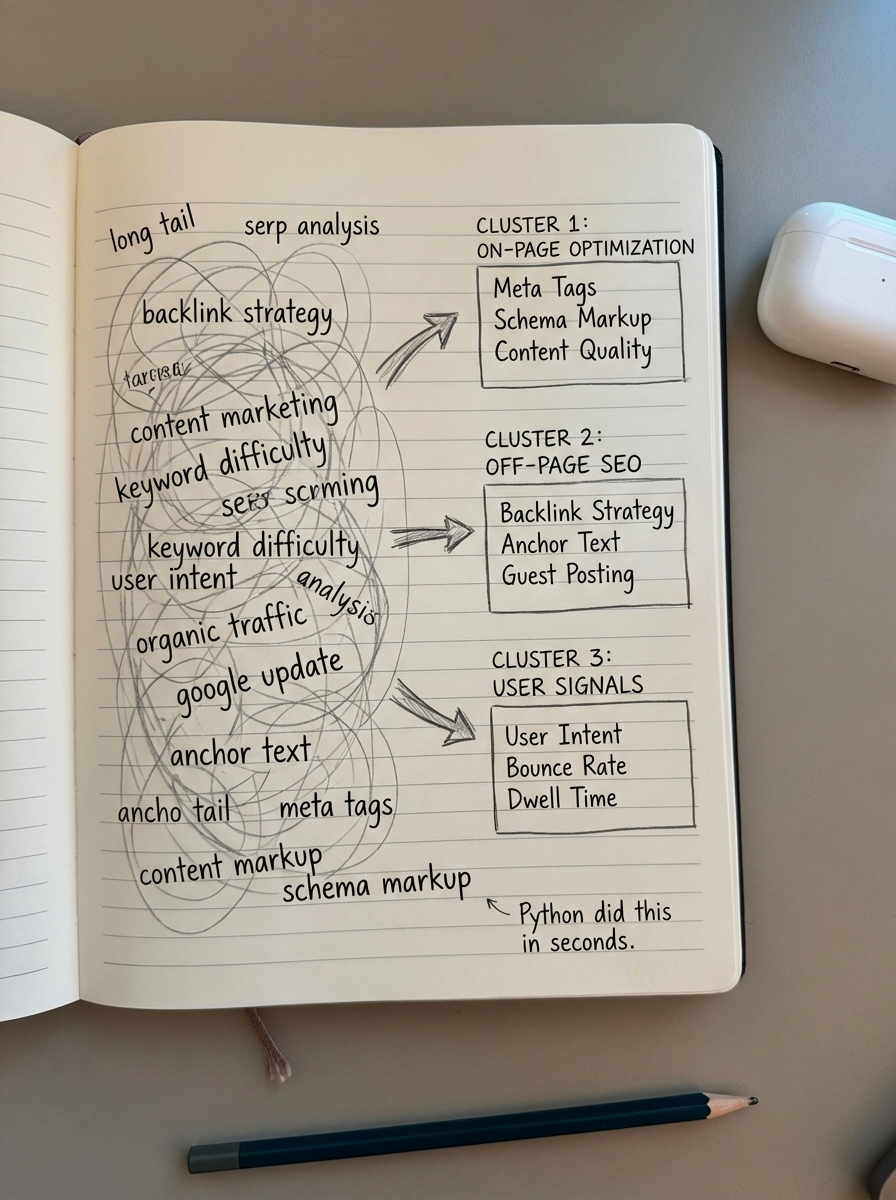 long tail
serp analysis
backlink strategy
content marketing
keyword difficulty
keyword difficulty
user intent
analysis
organic traffic
google update
anchor text
ancho tail
meta tags
content markup
schema markup
CLUSTER 1:
ON-PAGE OPTIMIZATION
Meta Tags
Schema Markup
Content Quality
CLUSTER 2:
OFF-PAGE SEO
Backlink Strategy
Anchor Text
Guest Posting
CLUSTER 3:
USER SIGNALS
User Intent
Bounce Rate
Dwell Time
Python did this
in seconds.